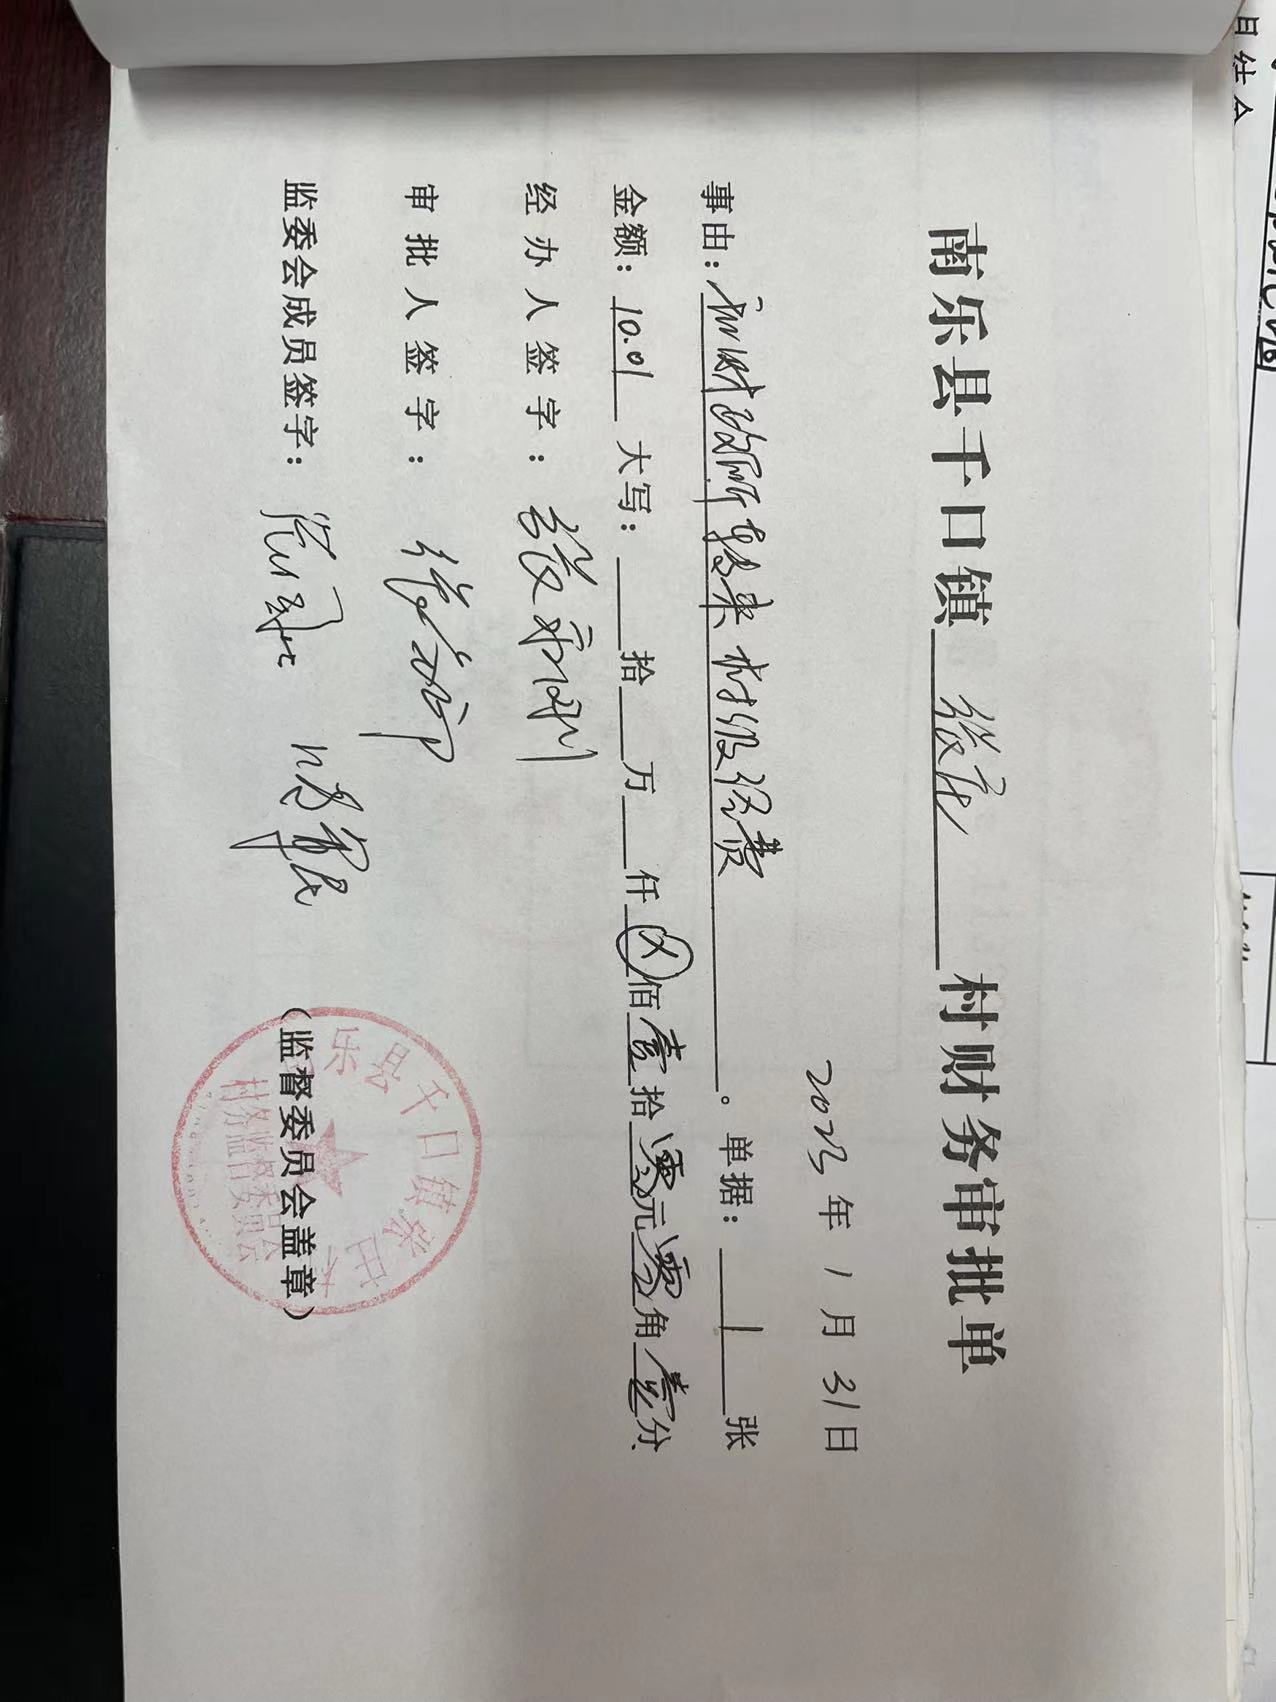 南乐县千口镇 张庄 村财务审批单
2023年1月31日
事由：初财政所转来村级经费。单据：1张
金额：10.01 大写：拾万仟ⓧ佰壹拾零元零角壹分
经办人签字：张
审批人签字：
监委会成员签字：
（监督委员会盖章）
乐县千口镇张庄村
村务监督委员会